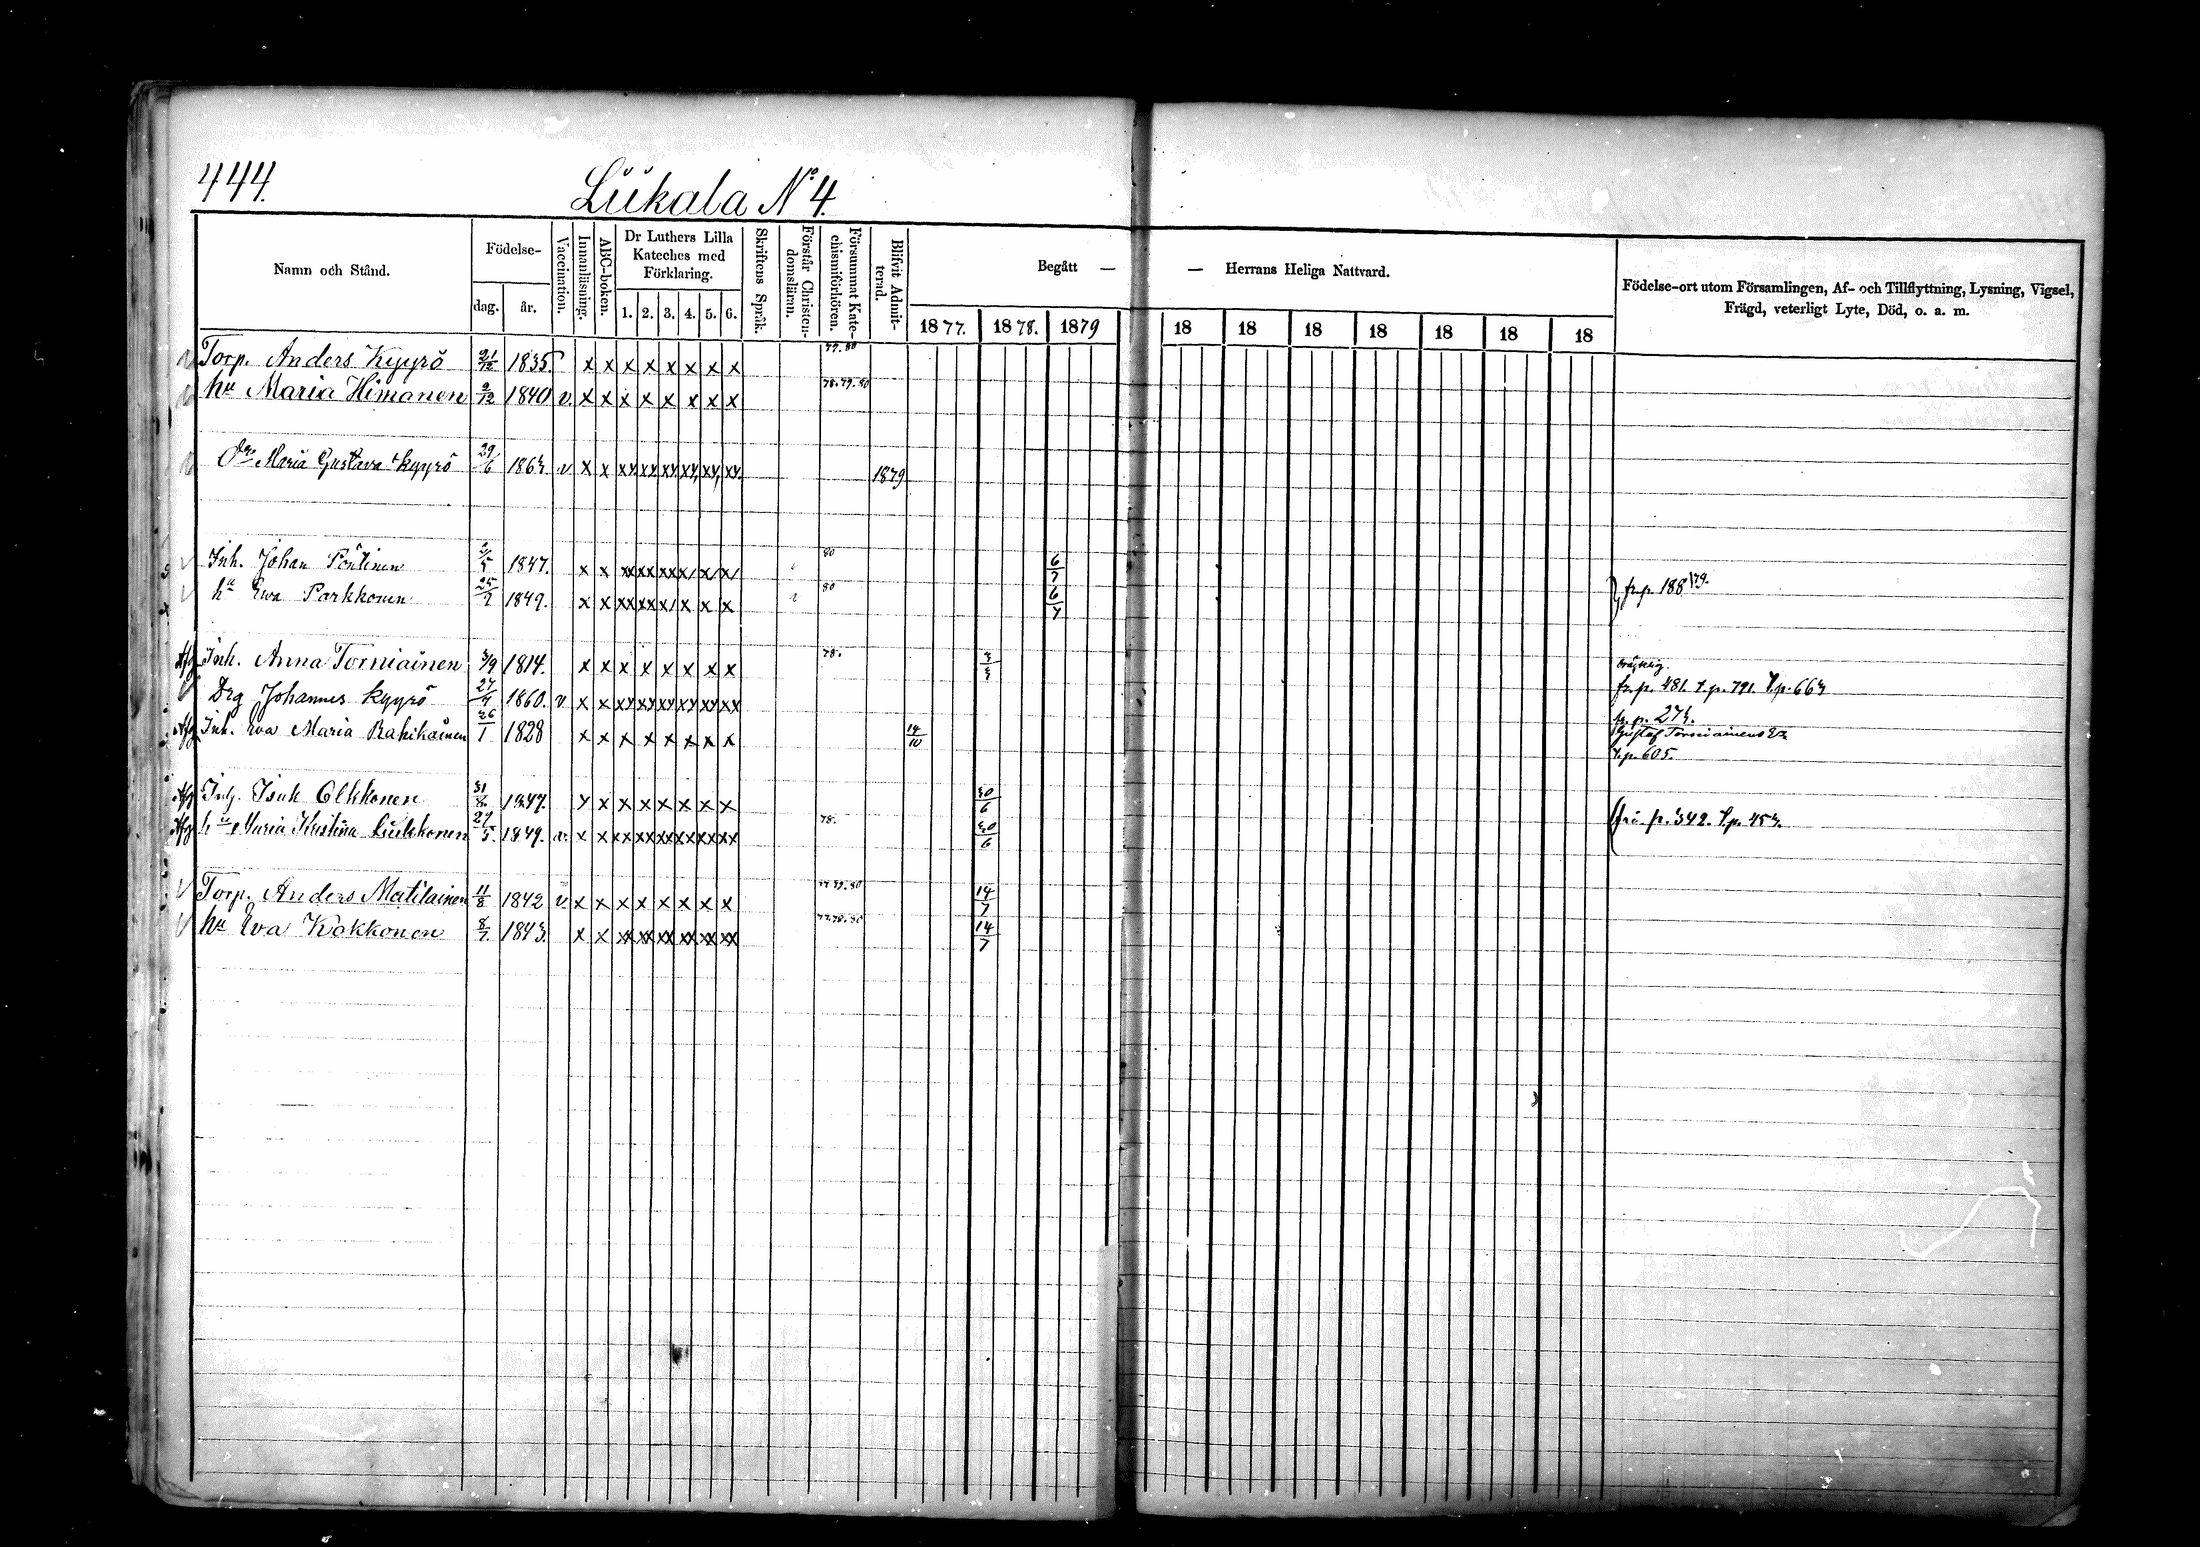 444.
Liikala No 4.
Namn och Stånd.
Födelse-
dag.
år.
Vaccination.
Innanläsning.
ABC-boken.
Dr Luthers Lilla
Kateches med
Förklaring.
1. 2. 3. 4. 5. 6.
Skriftens Språk.
Förstår Christen-
domsläran.
Försummat Kate-
chismiförhören.
Blifvit Admit-
terad.
Begått — — Herrans Heliga Nattvard.
1877. 1878. 1879 18 18 18 18 18 18 18
Födelse-ort utom Församlingen, Af- och Tillflyttning, Lysning, Vigsel,
Frägd, veterligt Lyte, Död, o. a. m.
Torp. Anders Kyyrö 21/12 1835. x x x x x x x x 79.80
hu Maria Himanen 2/12 1840 v. x x x x x x x x 78.79.80
Maria Gustava Kyyrö 29/6 1863. v x x xx xx xx xx xx xx 1879
Inh. Johan Pöntinen 1847. x x xx xx xx x/ x/ x/ 80 6/7
hu Ewa Parkkonen 25/2 1849. x x xx xx x/ x x x 80 6/7 fr. p. 188 /79.
Afg Inh. Anna Torniainen 3/9 1814. x x x x x x x x 78. 3/3
Drg Johannes Kyyrö 27/4 1860. v x x xx xx xx xx xx xx fr. p. 481. t. p. 791. t. p. 663
Afg Inh. Eva Maria Rahikainen 26/1 1828 x x x x x x x x 14/10 fr. p. 273.
Gustaf Torniainens
t. p. 605.
Afg Inh. Isak Olkkonen 31/8 1847. x x x x x x x x 30/6
Afg hu Maria Kristina Liukkonen 29/5. 1849. v. x x xx xx xx xx xx xx 78. 30/6 p. 342. t. p. 453.
Torp. Anders Matilainen 11/8 1842 v. x x x x x x x x 77.79.80 14/7
hu Eva Kokkonen 8/7. 1843. x x xx xx xx xx xx xx 77.78.80 14/7